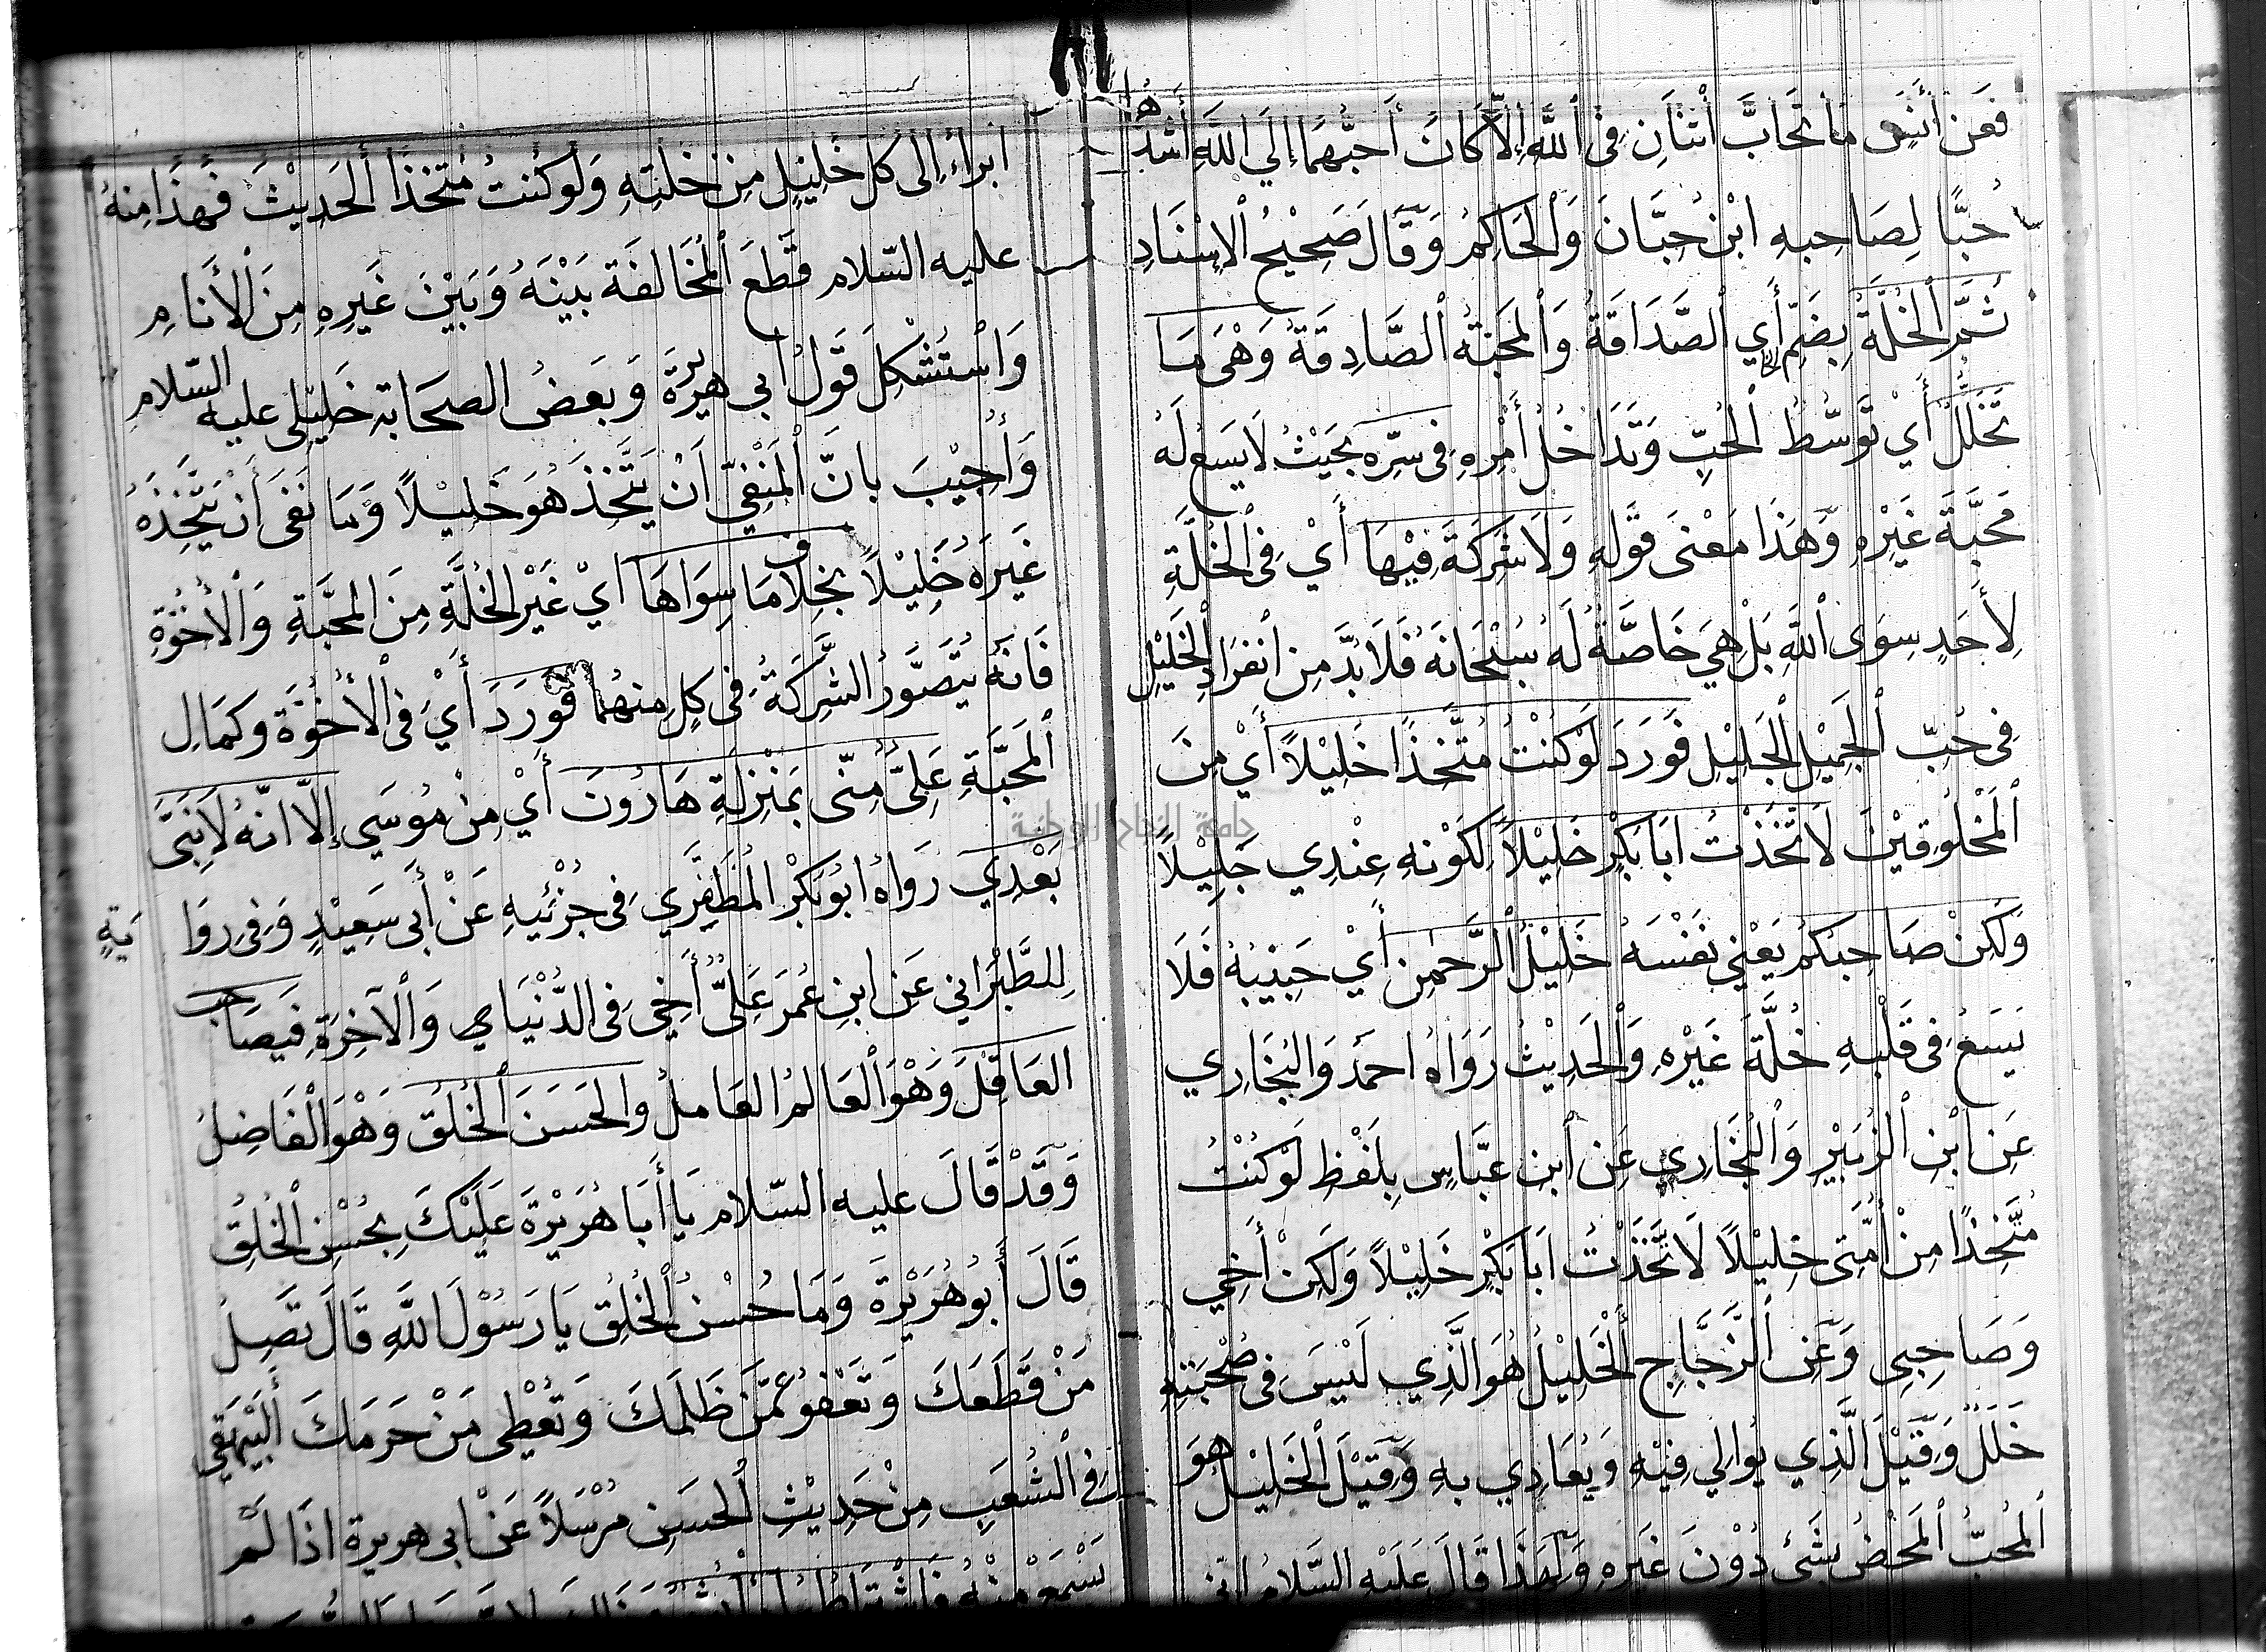 ٨١
فَعَن أَنَسٍ مَا تَحَابَّ أثْنَانِ فِى ٱللَّهِ إِلاَّ كَانَ أحَبُّهُمَا إِلَي اللَّهِ أَشَدُّهُمَا
حُبًّا لِصَاحِبِهِ ابْنُ حِبَّانَ وَالْحَاكِمُ وَقَالَ صَحِيْحُ الْإِسْنَادِ
ثُمَّ الْخُلَّةُ بِضَمٍّ أَي الصَّدَاقَةُ وَالْمَحَبَّةُ الصَّادِقَةُ وَهْىَ مَا
تَخَلَّلُ أَيْ تَوَسُّطُ الْحُبِّ وَتَدَاخُلُ أَمْرِهِ فِى سِرِّهِ بِحَيْثُ لَا يَسَعُ لَهُ
مَحَبَّةَ غَيْرِهِ وَهَذَا مَعْنَى قَولِهِ وَلَا شَرِكَةَ فِيْهَا أَيْ فِى الْخُلَّةِ
لِأَحَدٍ سِوَى اللَّهِ بَلْ هِيَ خَاصَّةٌ لَهُ سُبْحَانَهُ فَلَا بُدَّ مِن انْفِرَادِ الْخَلِيْلِ
فِى حُبِّ الْجَمِيْلِ الْجَلِيْلِ فَوَرَدَ لَوْ كُنْتُ مُتَّخِذًا خَلِيْلاً أَيْ مِنَ
الْمَخْلُوقِيْنَ لَاتَّخَذْتُ ابَا بَكْرٍ خَلِيْلاً لِكَوْنِهِ عِنْدِي جَلِيْلاً
وَلَكِنْ صَاحِبُكُمْ يَعْنِي نَفْسَهُ خَلِيْلُ الرَّحْمٰنِ أَيْ حَبِيْبُهُ فَلَا
يَسَعُ فِى قَلْبِهِ خُلَّةَ غَيْرِهِ وَالْحَدِيْثُ رَوَاهُ احمَدُ وَالْبُخَارِي
عَنِ ابْنِ الزُّبَيْرِ وَالْبُخَارِي عَنِ ابنِ عَبَّاسٍ بِلَفْظِ لَوْ كُنْتُ
مُتَّخِذًا مِنْ أُمَّتِى خَلِيْلاً لَاتَّخَذْتُ ابَا بَكْرٍ خَلِيْلاً وَلَكِنْ أَخِي
وَصَاحِبِي وَعَنِ الزَّجَّاجِ الْخَلِيْلُ هُوَ الَّذِي لَيْسَ فِى صُحْبَتِهِ
خَلَلٌ وَقِيْلَ الَّذِي يُوَالِي فِيْهِ وَيُعَادِي بِهِ وَقِيْلَ الْخَلِيْلُ هُوَ
الْمُحِبُّ الْمَحْضُ بِشَيْءٍ دُوْنَ غَيرِهِ وَلِهَذَا قَالَ عَلَيْهِ السَّلامُ اِنِّي
ابرَاءُ إِلَى كُلِّ خَلِيْلٍ مِنْ خُلَّتِهِ وَلَوْ كُنتُ مُتَّخِذًا الْحَدِيْثَ فَهَذَا مِنْهُ
عليه السّلام قَطَعَ الْمُخَالَفَة بَيْنَهُ وَبَيْنَ غَيرِهِ مِنَ الْأَنَامِ
وَاسْتُشْكِلَ قَوْلُ أبي هريرَة وَبَعضُ الصحَابَة خَلِيْلِى عليه السّلام
وَأُجِيْبَ بانَّ الْمَنْفِيّ اَنْ يَتَّخِذَ هُوَ خَلِيْلاً وَمَا نَفَى أَنْ يَتَّخِذَهُ
غَيرَهُ خَلِيْلاً بِخِلاف مَا سِوَاهَا ايْ غَيْرِ الْخُلَّةِ مِنَ الْمَحَبَّةِ وَالْأُخُوَّةِ
فَانَّهُ يُتَصَوَّرُ الشَّرِكَةُ فِى كلٍ مِنهُمَا فَوَرَدَ أَيْ فِى الْأُخُوَّة وَكمَالِ
الْمَحَبَّةِ عَلِىٌّ مِنِّى بِمَنْزِلَةِ هَارُونَ أَيْ مِنْ مُوسَي إِلاَّ انَّهُ لَا نَبِيَّ
بَعْدِي رَوَاهُ ابُو بَكْرْ الْمُطَفِّرِي فِى جُزْئِيهِ عَنْ أَبِى سَعِيْدٍ وَفِى رِوَايَةٍ
لِلطَّبَرَانِي عَن ابنِ عُمَرَ عَلِىٌّ أَخِي فِى الدُّنْيَا وَالْآخِرَةِ فَيُصَاحِب
العَاقِلَ وَهْوَ الْعَالِمُ العَامِلُ وَالحَسَنَ الْخُلُقِ وَهْوَ الْفَاضِلُ
وَقَدْ قَالَ عليه السّلام يَا أَبَا هُرَيْرَةَ عَلَيْكَ بِحُسْنِ الْخُلُقِ
قَالَ أَبُو هُرَيْرَةَ وَمَا حُسْنُ الْخُلُقِ يَا رَسُوْلَ اللَّهِ قَالَ تَصِلُ
مَنْ قَطَعَكَ وَتَعْفُو عَمَّن ظَلَمَكَ وَتُعْطِى مَنْ حَرَمَكَ الْبَيْهَقِي
فِى الشُّعَبِ مِنْ حَدِيْثِ الْحَسَنِ مُرْسَلاً عَنْ ابى هريرة اذَا لَمْ
يَسْمَعْ مِنْهُ
جامعة النجاح الوطنية